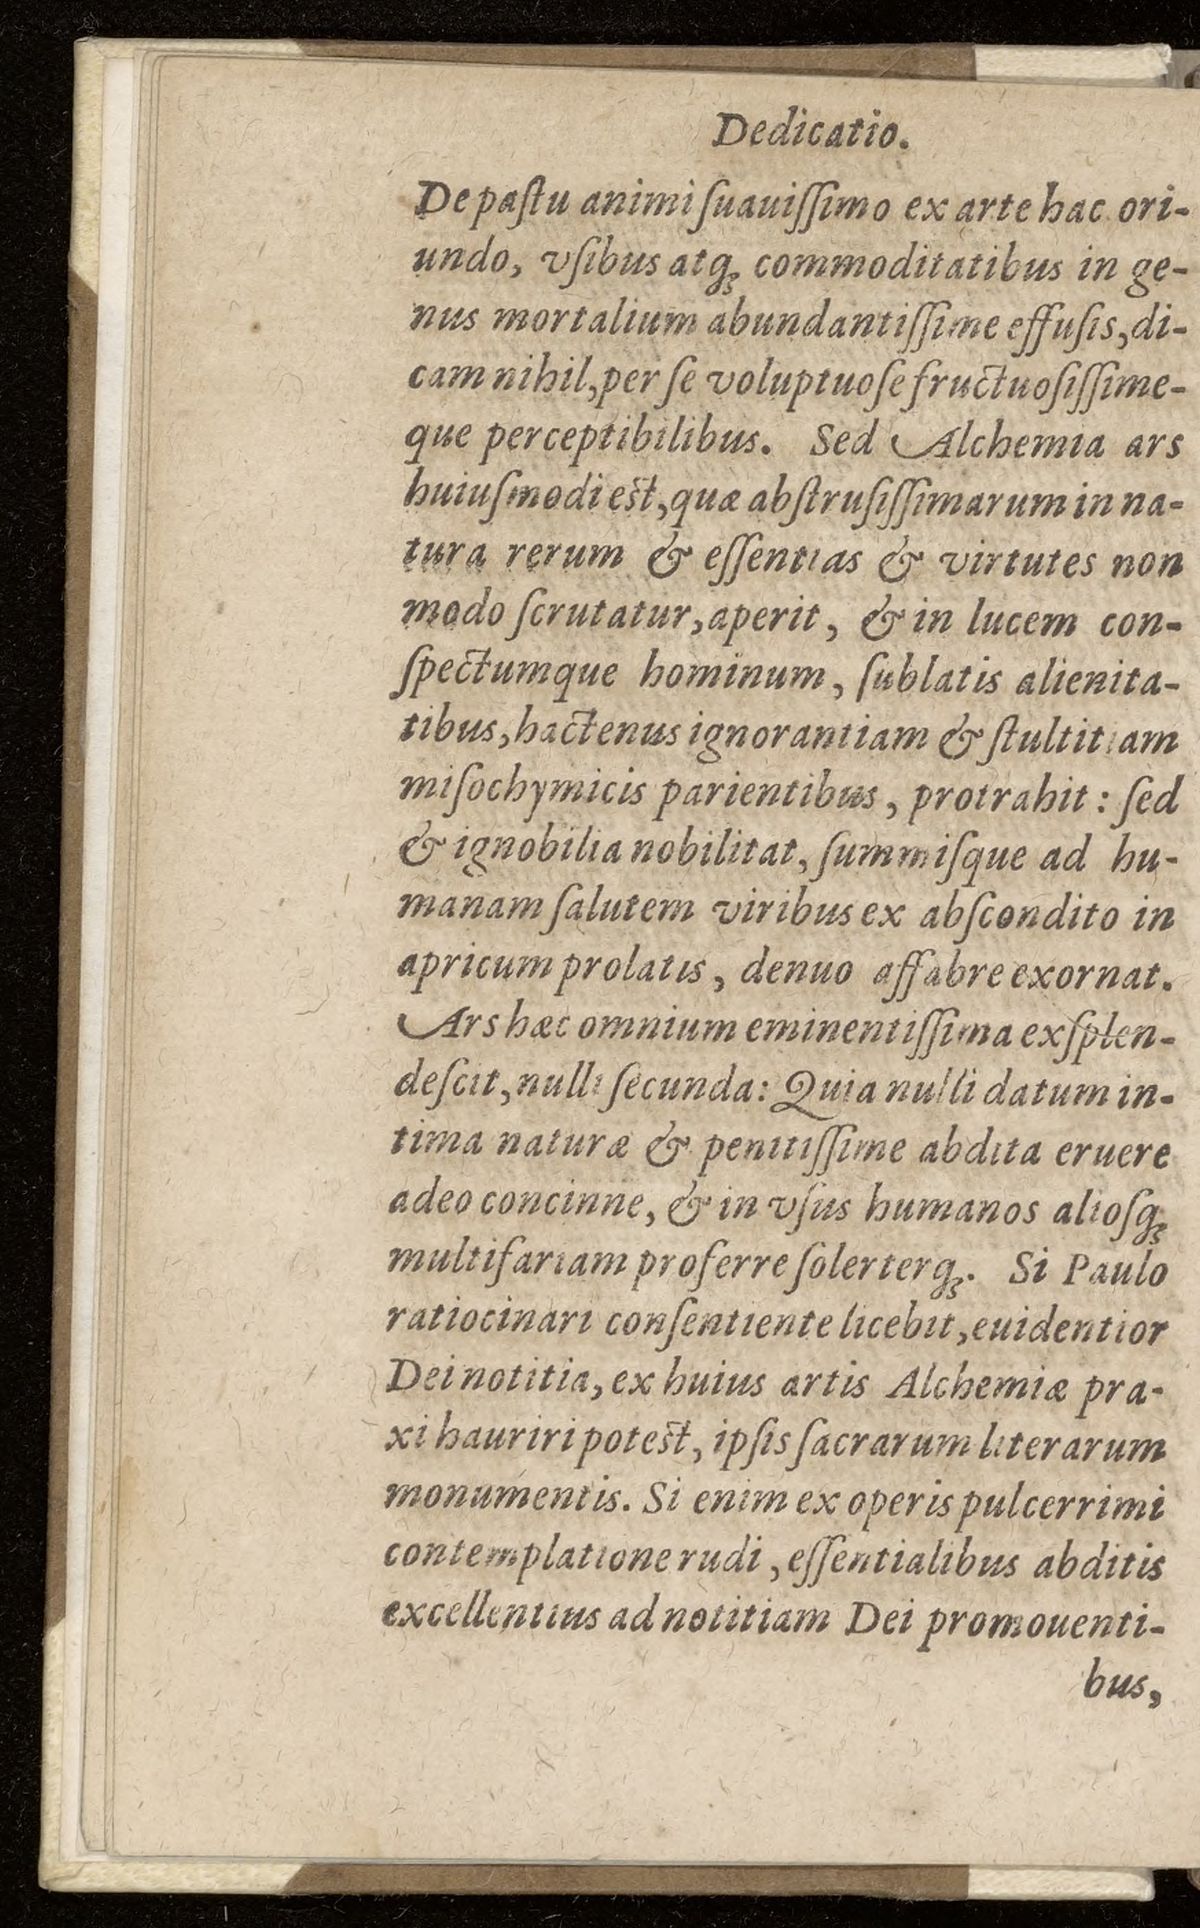 Dedicatio.
De paſtu animi ſuauiſſimo ex arte hac ori-
undo, vſibus atq́ꝫ commoditatibus in ge-
nus mortalium abundantiſſime effuſis, di-
cam nihil, per ſe voluptuoſe fructuoſiſſime-
que perceptibilibus. Sed Alchemia ars
huiuſmodi est, quæ abſtruſiſſimarum in na-
tura rerum & eſſentias & virtutes non
modo ſcrutatur, aperit, & in lucem con-
ſpectumque hominum, ſublatis alienita-
tibus, hactenus ignorantiam & ſtultitiam
miſochymicis parientibus, protrahit: ſed
& ignobilia nobilitat, ſummiſque ad hu-
manam ſalutem viribus ex abſcondito in
apricum prolatis, denuo affabre exornat.
Ars hæc omnium eminentiſſima exſplen-
deſcit, nulli ſecunda: Quia nulli datum in-
tima naturæ & penitiſſime abdita eruere
adeo concinne, & in vſus humanos alioſqꝫ
multifariam proferre ſolerterqꝫ. Si Paulo
ratiocinari conſentiente licebit, euidentior
Dei notitia, ex huius artis Alchemiæ pra-
xi hauriri potest, ipſis ſacrarum literarum
monumentis. Si enim ex operis pulcerrimi
contemplatione rudi, eſſentialibus abditis
excellentius ad notitiam Dei promouenti-
bus,